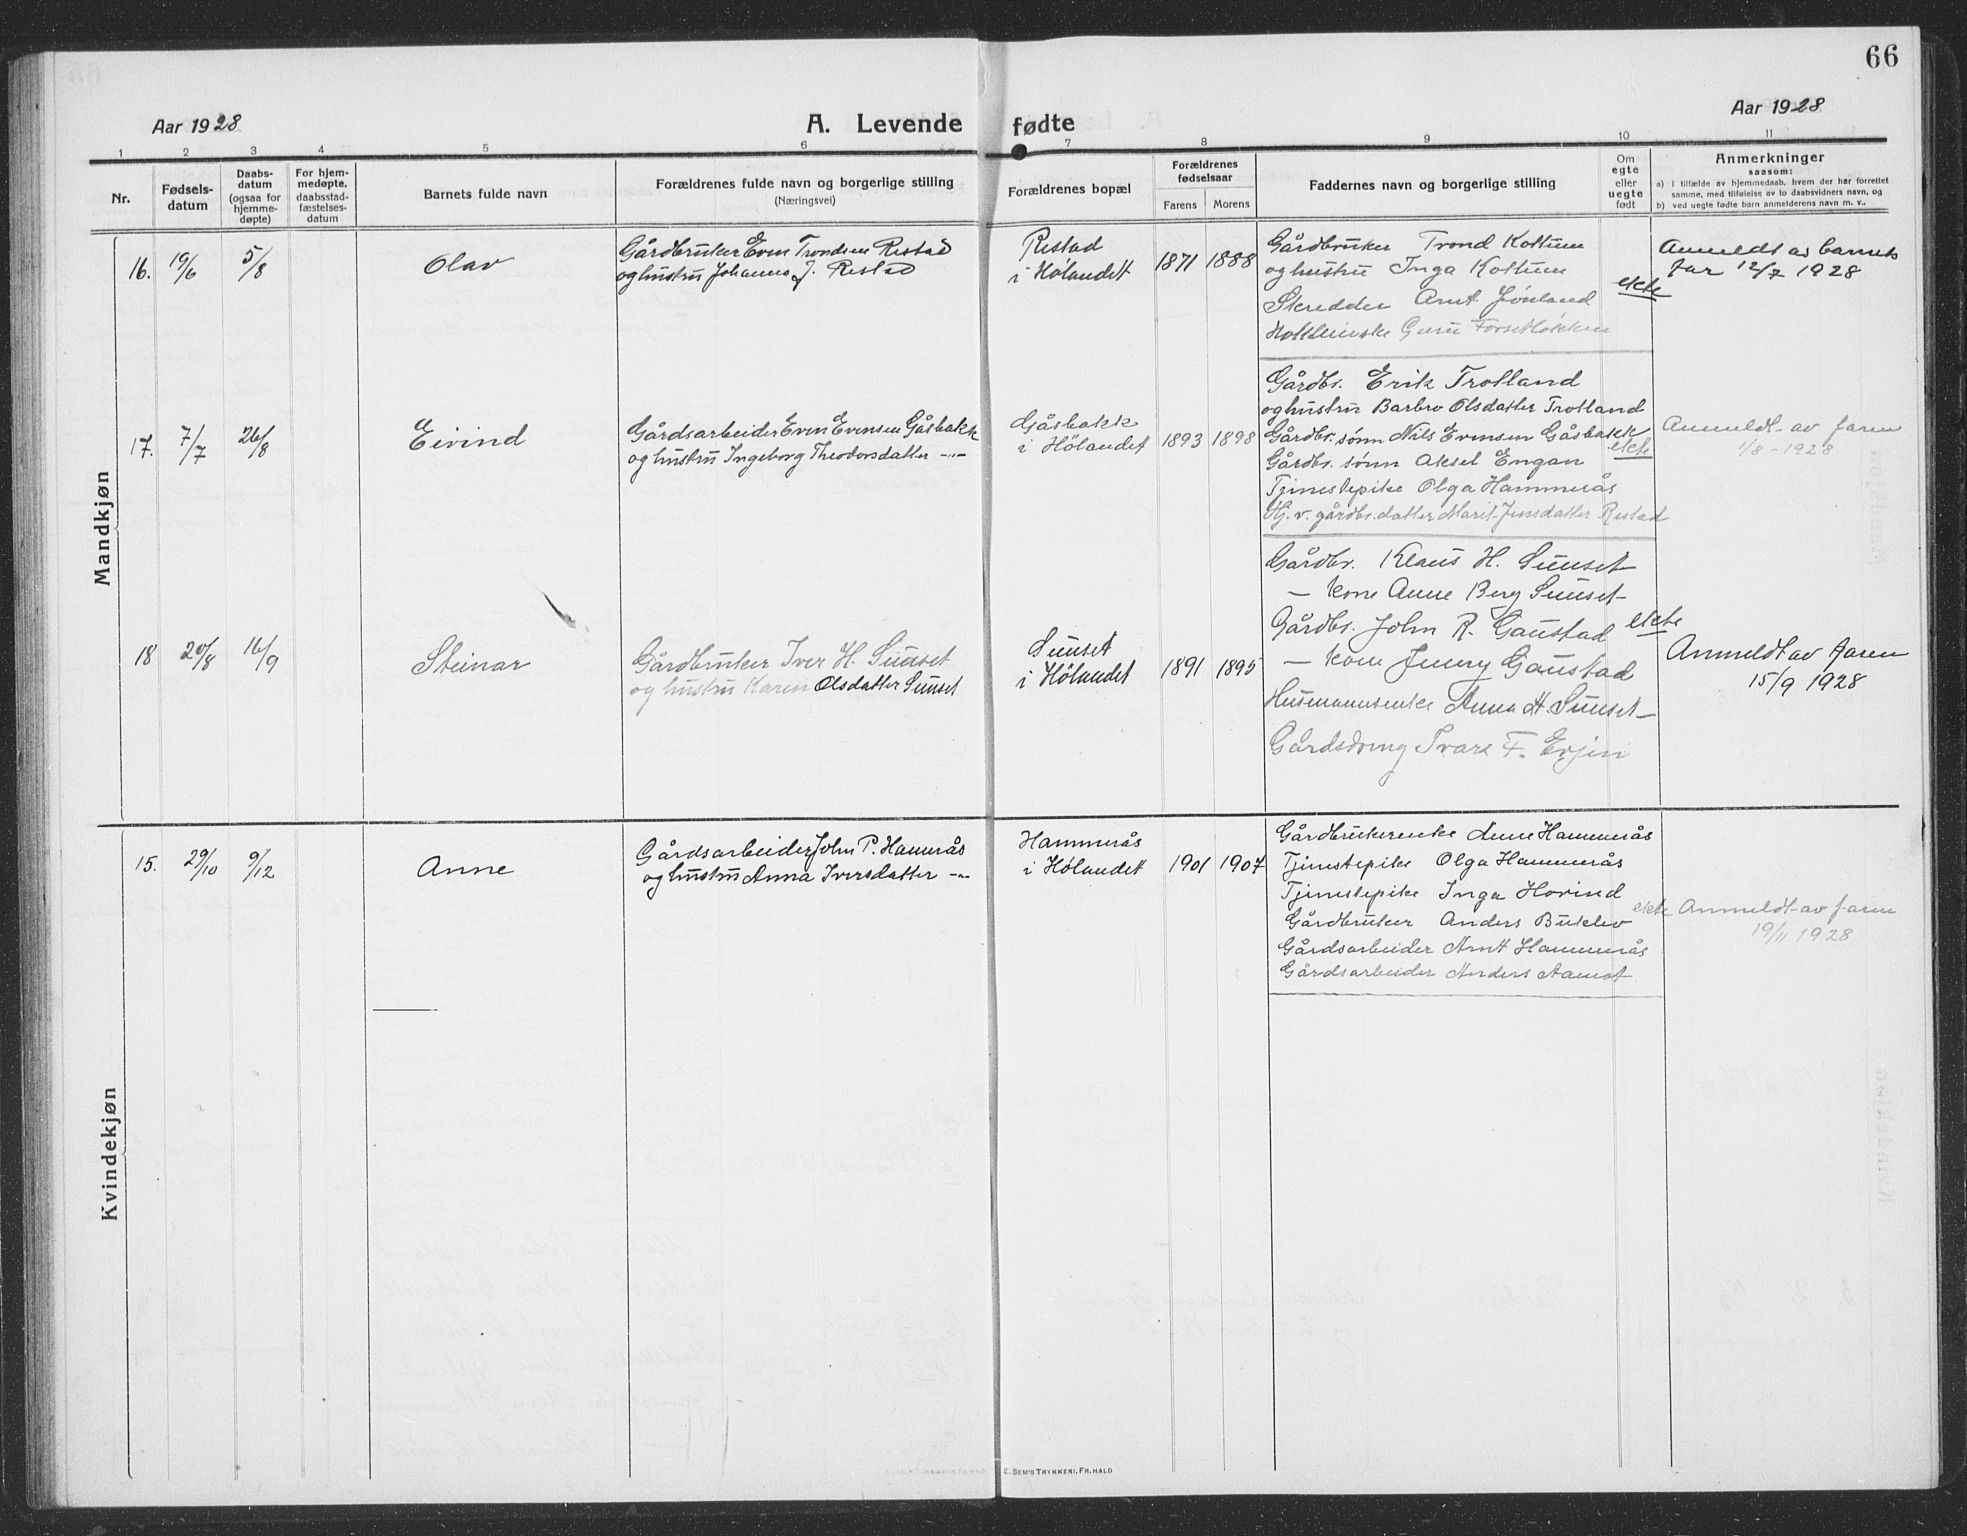 66
Aar 1928
A. Levende fødte
Aar 1928
1 2 3 4 5 6 7 8 9 10 11
Nr.
Fødsels-
datum
Daabs-
datum
(ogsaa for
hjemme-
døpte)
For hjem-
medøpte,
daabsstad-
fæstelses-
datum
Barnets fulde navn
Forældrenes fulde navn og borgerlige stilling
(Næringsvei)
Forældrenes bopæl
Forældrenes
fødselsaar
Farens Morens
Faddernes navn og borgerlige stilling
Om
egte
eller
uegte
født
Anmerkninger
saasom:
a) I tilfælde av hjemmedaab, hvem der har forrettet
samme, med tilføielse av to daabsvidners navn, og
b) ved uegte fødte barn anmelderens navn m. v..
Mandkjøn
16. 19/6 5/8
Olav
Gårdbruker Even Trondsen Restad
og hustru Johanna J. Restad
Restad
i Hølandet
1871 1888
Gårdbruker Trond Kottum
og hustru Inga Kottum
Skredder Arnt
Guru
ekte
Anmeldt av barnets
far 12/7 1928
17. 7/7 26/8
Eivind
Gårdsarbeider Even Evensen Gåsbakk
og hustru Ingeborg Theodorsdatter -"-
Gåsbakk
i Hølandet
1893 1898
Gårdbr. Erik Trotland
og hustru Barbro Olsdatter Trotland
Gårdbr. sønn Nils Evensen Gåsbakk
Gårdbr. sønn Aksel Engan
Tjenestepike Olga Hammerås
Hj. v. gårdbr. datter Marit Jensdatter Restad
ekte
Anmeldt av faren
1/8 - 1928
18 20/8 16/9
Steinar
Gårdbruker Iver H. Sunset
og hustru Karen Olsdatter Sunset
Sunset
i Hølandet
1891 1895
Gårdbr. Klaus H. Sunset
— kone Anne Berg Sunset
Gårdbr. John R. Gaustad
— kone Jenny Gaustad
Husmannsenke Anna H. Sunset
Gårdsdreng Ivars F. Evjen
ekte
Anmeldt av faren
15/9 1928
Kvindekjøn
15. 29/10 9/12
Anne
Gårdsarbeider John P. Hammerås
og hustru Anna Iversdatter -"-
Hammerås
i Hølandet
1901 1907
Gårdbrukerenke Anne Hammerås
Tjenestepike Olga Hammerås
Tjenestepike Inga Hovind
Gårdbruker Anders Buklev
Gårdsarbeider Arnt Hammerås
Gårdsarbeider Anders Aamot
ekte
Anmeldt av faren
19/11 1928
E. SEM'S TRYKKERI, FR.HALD